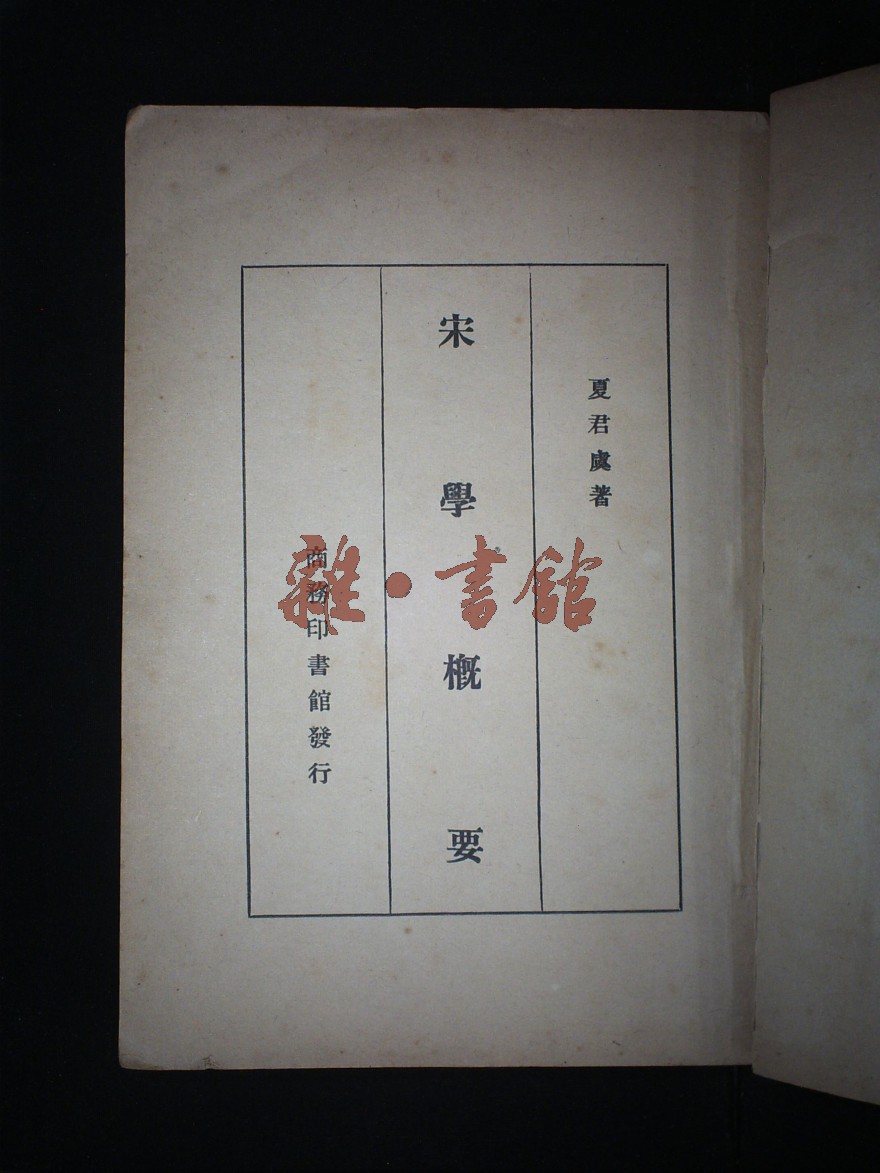 夏君虞著
宋學概要
商務印書館發行
雜·書館